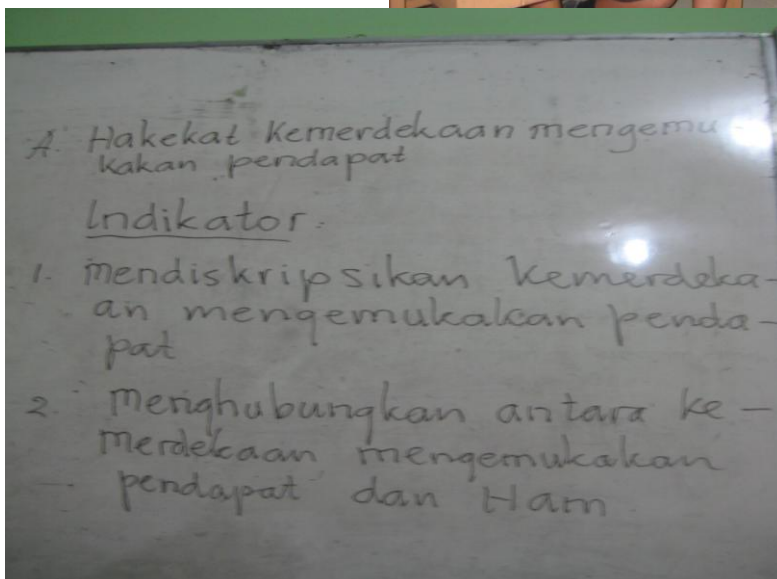 A. Hakekat Kemerdekaan mengemu
kakan pendapat
Indikator.
1. mendiskripsikan kemerdeka-
an mengemukakan penda-
pat
2. menghubungkan antara ke-
merdekaan mengemukakan
pendapat dan Ham